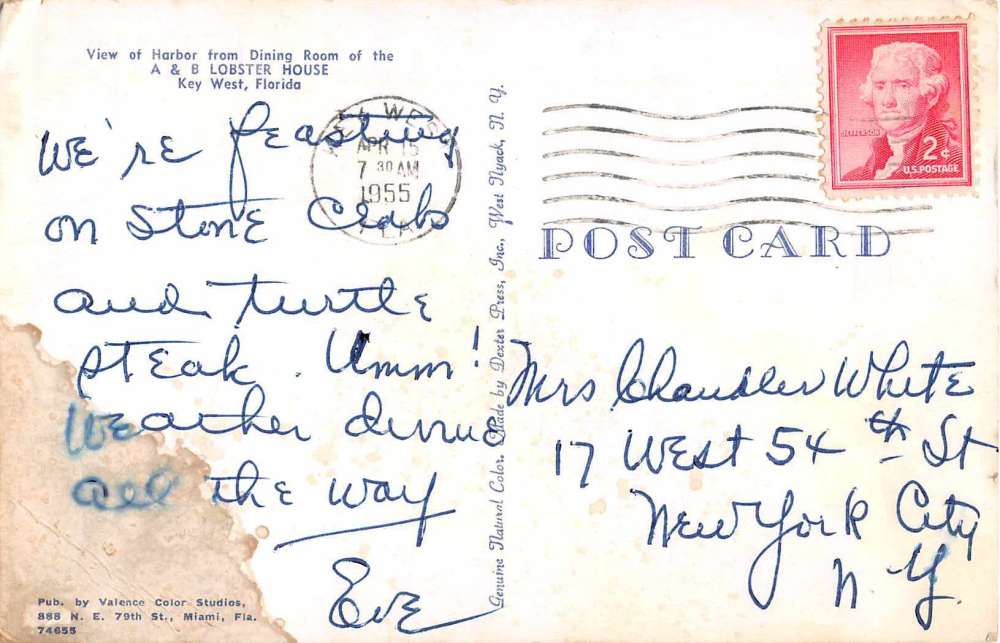 View of Harbor from Dining Room of the
A & B LOBSTER HOUSE
Key West, Florida
We're feasting
on Stone Crabs
and turtle
steak. Umm!
Weather divine
all the way
Eve
Pub. by Valence Color Studios,
888 N. E. 79th St., Miami, Fla.
74655
Genuine Natural Color. Made by Dexter Press, Inc., West Nyack, N. Y.
KEY WEST
APR 15
7 30 AM
1955
FLA.
JEFFERSON
2¢
U.S. POSTAGE
POST CARD
Mrs Chandler White
17 West 54th St
New York City
N Y.